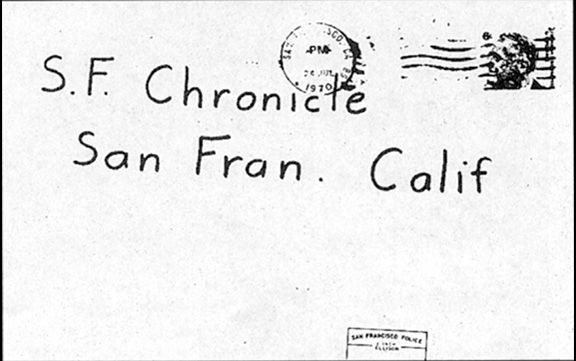 PM
24 JUL
1970
S.F. Chronicle
San Fran. Calif
SAN FRANCISCO POLICE